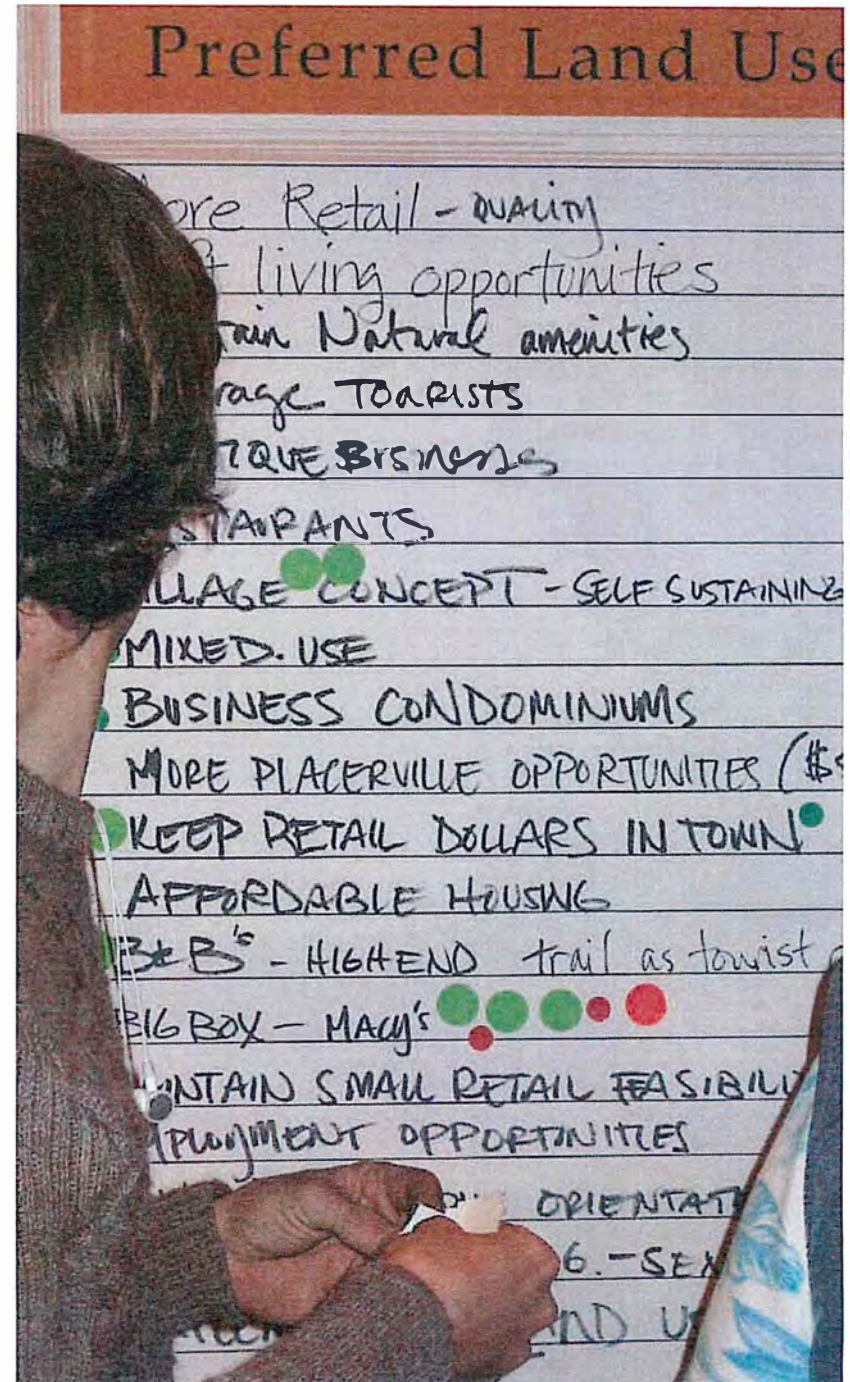 Preferred Land Use
ore Retail - QUALITY
living opportunities
tain Natural amenities
rage TOURISTS
IQUE Businesses
STAURANTS
ILLAGE CONCEPT - SELF SUSTAINING
MIXED. USE
BUSINESS CONDOMINIUMS
MORE PLACERVILLE OPPORTUNITIES ($
KEEP RETAIL DOLLARS IN TOWN
AFFORDABLE HOUSING
B&B's - HIGH END trail as tourist
BIG BOX - MACY's
NTAIN SMALL RETAIL FEASIBILI
MPLOYMENT OPPORTUNITIES
ORIENTAT
6. - SEX
ND U